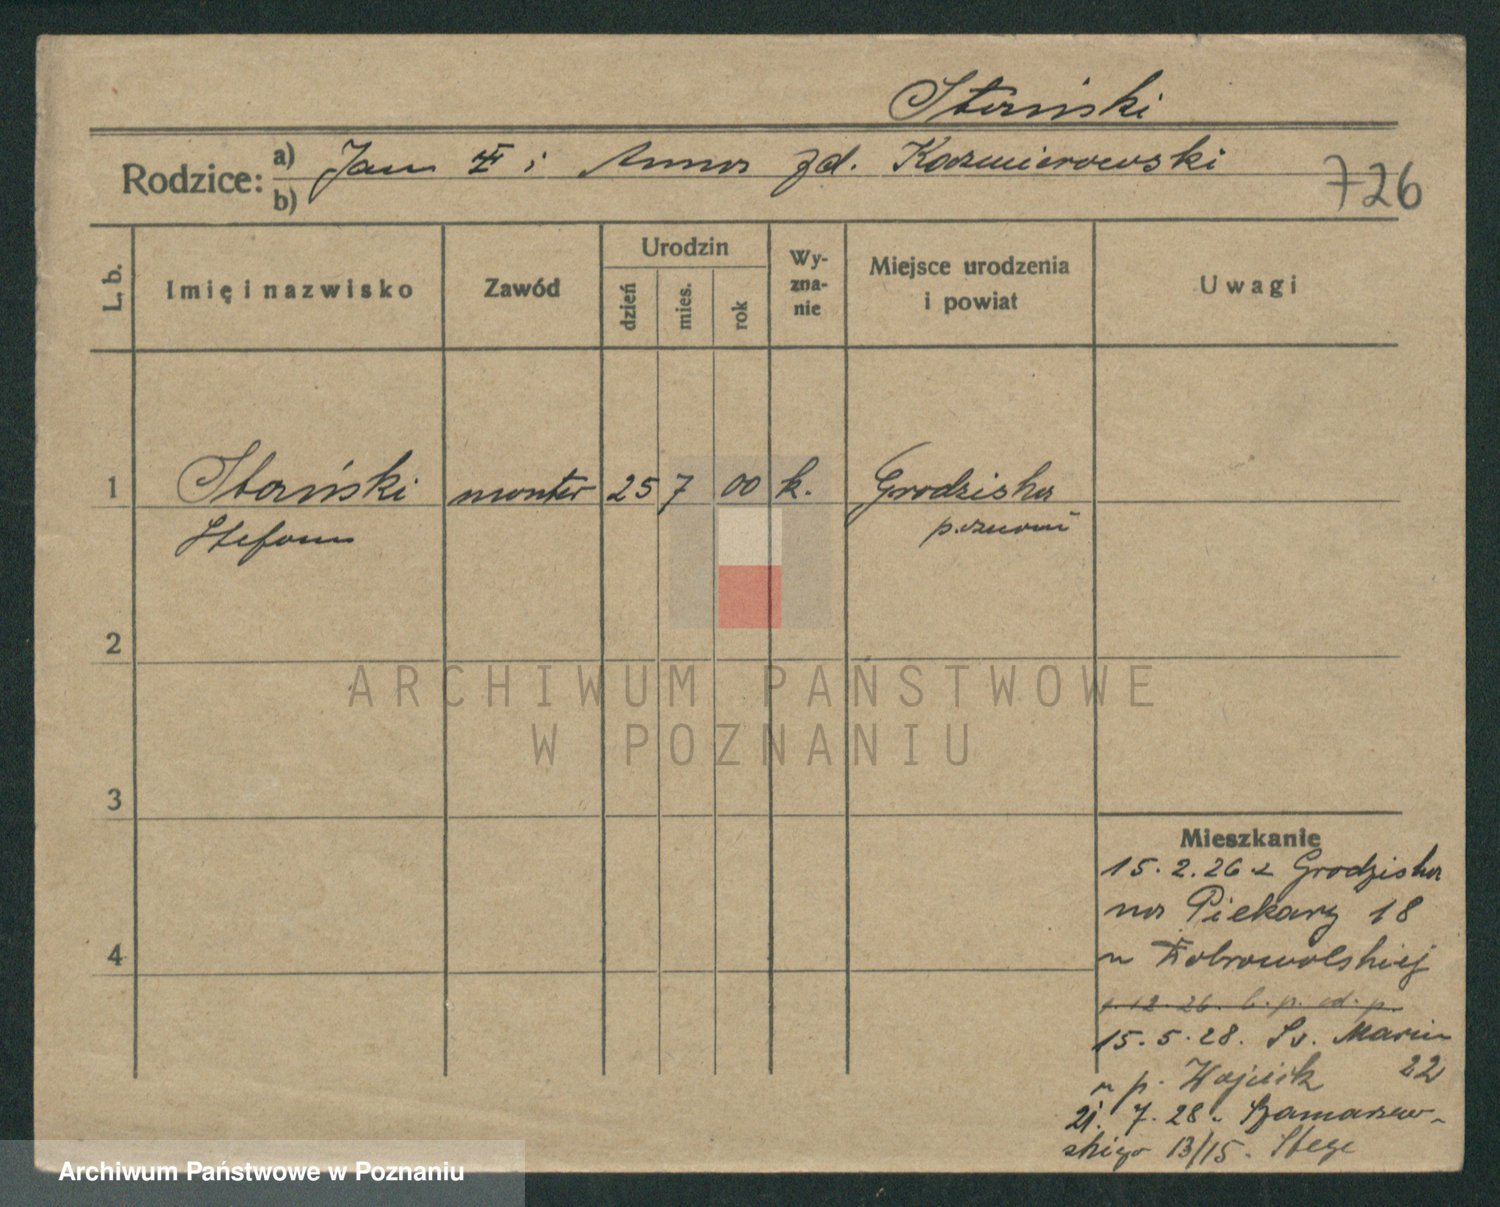 Stański
Rodzice: a) b) Jan i Anna zd. Kaźmierowski
726
L. b.
Imię i nazwisko
Zawód
Urodzin
dzień
mies.
rok
Wy-
zna-
nie
Miejsce urodzenia
i powiat
Uwagi
1 Stański monter 25 7 00 k. Grodziska
Stefan
2
ARCHIWUM PAŃSTWOWE
W POZNANIU
3
4
Mieszkanie
15.2.26 z Grodziska
na Piekary 18
u Dobrowolskiej
15.5.28. Św. Marcin
u p. Wojcik 22
21.7.28. Szamarzew-
skiego 13/15.
Archiwum Państwowe w Poznaniu